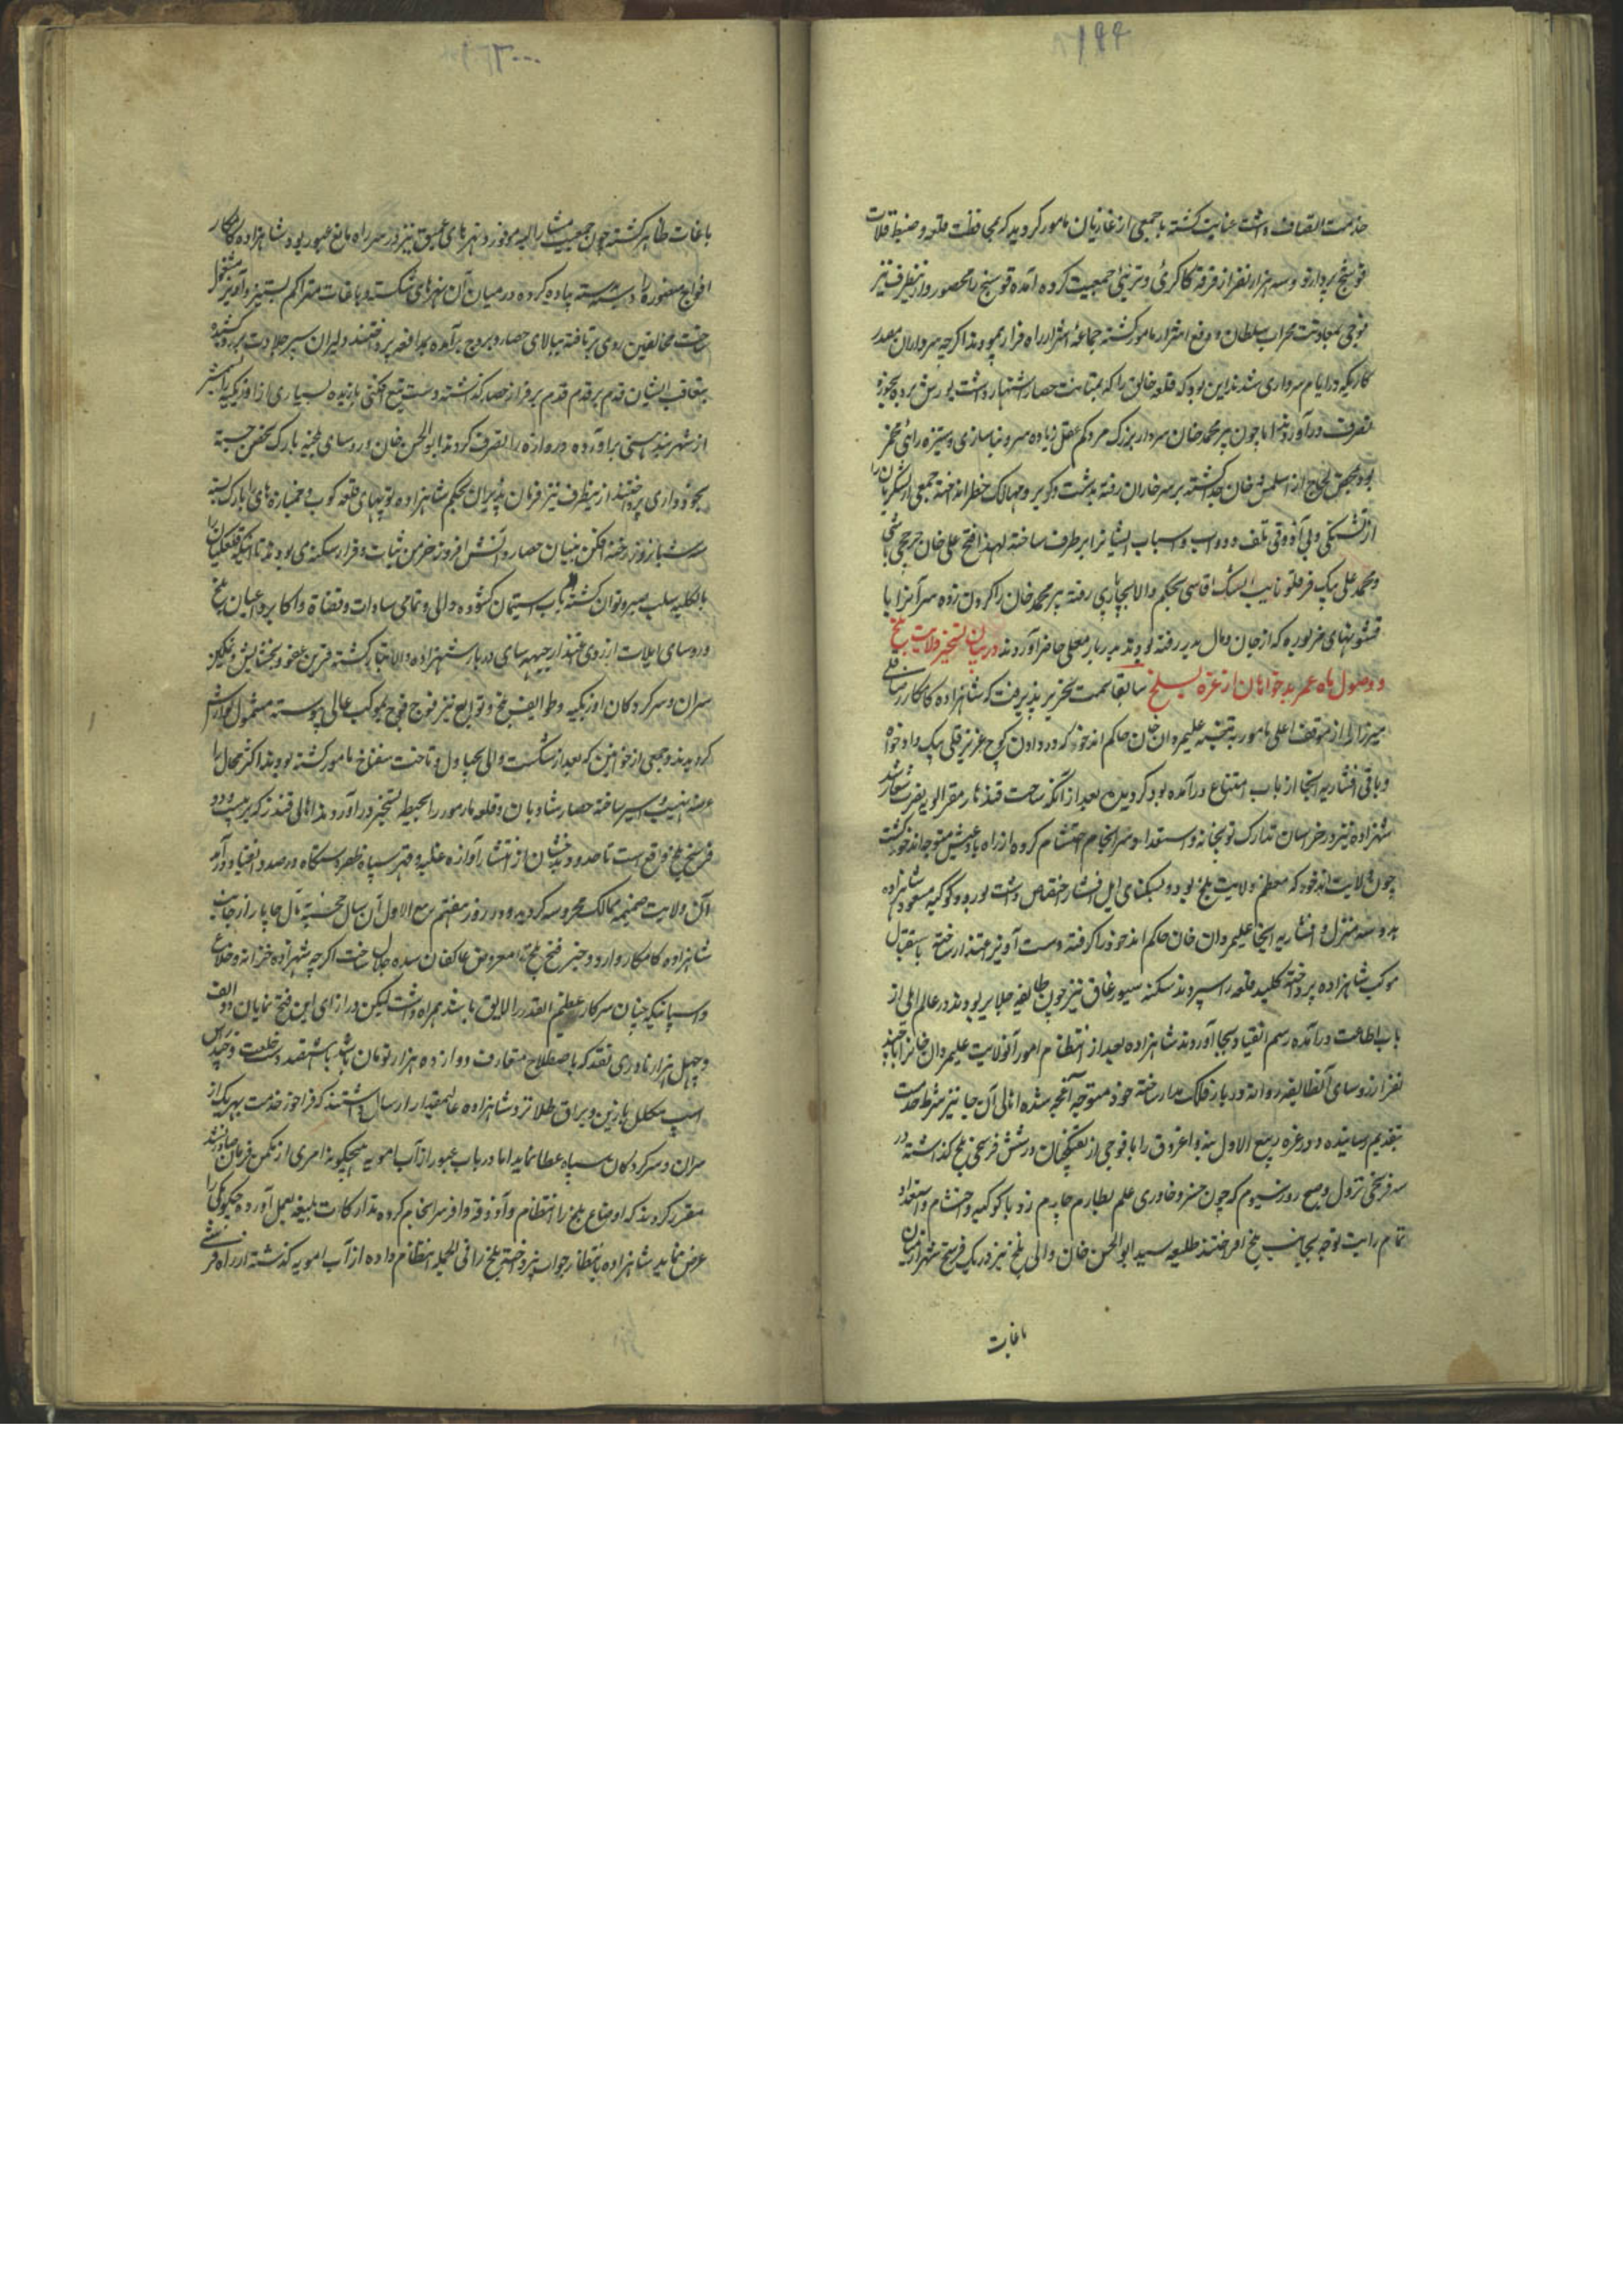 خدمت اتصاف داشت عنایت کشته با جمعی از غازیان مامور کردید که بمحافظت قلعه و ضبط قلات
فوشنج پردازد و سه هزار نفر از فرقه کاکری و ترینی جمعیت کرده آمده فوسنج را محصور و از اینطرف نیز
فوجی بمعاونت محراب سلطان و دفع اشرار مامور کشته جماعه اشرار راه فرار پیمودند اگرچه سرداران مصدر
کاریکه در ایام سرداری شدند این بود که قلعه خالق را که بمتانت حصار اشتهار داشت یورش برده بحوزه
تصرف درآوردند اما چون پیر محمد خان سردار بزرک مرد کم عقل
بود بمحض لجاج از اسلمس خان جدا کشته بر سر خاران رفته بدشت و کویر و مهالک خطر انداخته جمعی از لشکریان را
از تشنکی و بی آذوقی تلف و دواب و اسباب ایشانرا برطرف ساخته لهذا فتح علی خان چرخچی باشی
و محمد علی بیک قرقلو نایب ایشک اقاسی بحکم والا بچاپاری رفته پیر محمد خان را کردن زده سر آنرا با
قشونهای مزبوره که از جان و مال بدر رفته بودند بدربار معلی حاضر آوردند در بیان تسخیر ولایت بلخ
و وصول ماه عمر بدخواهان از غره بسلخ سابقا سمت تحریر پذیرفت که شاهزاده کامکار رضا قلی
میرزا از موقف اعلی مامور به تنبیه علیمردان خان حاکم اندخود که در دادن کوچ عزیز قلی بیک داد خواه
و باقی افشاریه آنجا از باب امتناع درآمده بود کردیده بعد از آنکه ساحت قندهار مقر الویه نصرت شعار شد
شهزاده نیز در خراسان تدارک توپخانه و استعداد و سرانجام احتشام کرده از راه بادغیش متوجه اندخود کشت
چون ولایت اندخود که معظم ولایت بلخ بود و بسکنای ایل افشار اختصاص داشت بورود کوکبه مسعود شاهزاده
بدو سه منزل و افشاریه آنجا علیمردان خان حاکم اندخود را کرفته دست آویز اعتذار ساخته باستقبال
موکب شاهزاده پرداخته کلید قلعه را سپردند سکنه نیز چون طایفه جلایر بودند در عالم ایلی از
باب اطاعت درآمده رسم انقیاد بجا آوردند شاهزاده بعد از انتظام امور آنولایت علیمردان خانرا با چند
نفر از رؤسای آنطایفه روانه دربار فلک مدار ساخته خود متوجه آقچه شده اهالی آن جا نیز شرط خدمت
بتقدیم رسانیده و در غره ربیع الاول بنه و اغروق را با فوجی از تفنکچیان در شش فرسخی بلخ کذاشته در
سه فرسخی نزول و صبح روز سیوم که چون خسرو خاوری علم بطارم چارم زد با کوکبه و احتشام و استعداد
تمام رایت توجه بجانب بلخ افراختند طلیعه سید ابوالحسن خان والی بلخ نیز در یک فرسخی شهر از میان
باغات
باغات ظاهر کشته چون جمعیت مشار الیه موفور و نهرهای عمیق نیز در سر راه مانع عبور بود شاهزاده کامکار
افواج منصوره را دسته دسته پیاده کرده در میان آن نهرهای شکسته و باغات متراکم بستیز و آویز مشغول
ساخت مخالفین روی برتافته ببالای حصار و بروج برآمده بمدافعه پرداختند دلیران سپر جلادت بر رو کشیده
متعاقب ایشان قدم بر قدم بر فراز حصار کذاشته دست تیغ افکنی یازیده بسیاری از اوزبکیه را
از شهربند هستی برآورده دروازه را تصرف کردند ابوالحسن خان و رؤسای بلخیه بارک تحصن جسته
بخودداری پرداختند از اینطرف نیز فرمان پذیران بحکم شاهزاده توپهای قلعه کوب و خمپاره های را بارک بسته
سه شبانروز رخنه افکن بنیان حصار و آتش افروز خرمن ثبات و قرار سکنه می بودند تا اینکه قلعکیان را
بالکلیه سلب صبر و توان کشته باب استیمان کشوده والی و تمامی سادات و قضاة و اکابر و اعیان بلخ
و رؤسای ایلات از روی اعتذار جبهه سای دربار شهزاده والاتبار کشته قرین عفو و بخشایش
سران و سرکردکان اوزبکیه و طوایف بلخ و توابع نیز فوج فوج بموکب عالی پیوسته مشمول نوازش
کردیدند و جمعی از خوانین که بعد از شکست والی بچپاول و تاخت مامور کشته بودند اکثر محال را
عرضه نهب و اسیر ساخته حصار شادیان و قلعه را بحیطه تسخیر درآوردند اهالی قندز که در بیست و دو
فرسخ بلخ واقع است تا حدود بدخشان از انتشار آوازه غلبه و قهر سپاه ظفر دستکاه در صدد انقیاد درآمده
آن ولایت ضمیمه ممالک محروسه کردید و در روز هفتم ربیع الاول آن سال خجسته مال چاپار از جانب
شاهزاده کامکار وارد و خبر فتح بلخ را معروض عاکفان سده جلال ساخت اکرچه شهزاده خزانه و خلاع
و اسبانیکه چنان سرکار عظیم القدر را لایق باشد همراه داشت لیکن در ازای این فتح نمایان دو الف
و چهل هزار نادری نقد که باصطلاح متعارف دوازده هزار تومان باشد با سیصد دست خلعت و چند رأس
اسب مکلل با زین و یراق طلا نزد شاهزاده عالیمقدار ارسال داشتند که فراخور خدمت بهر یک از
سران و سرکردکان سپاه عطا نماید اما در باب عبور از آب امویه هیچکونه امری از مکمن فرمان صادر نشد
مقرر کردند که اوضاع بلخ را انتظام و آذوقه وافر سرانجام کرده تدارکات بلیغه بعمل آورده چکونکی را
عرض نماید شاهزاده بانتظار جواب نپرداخته بلخ را فی الجمله انتظام داده از آب امویه کذشته از راه قرشی